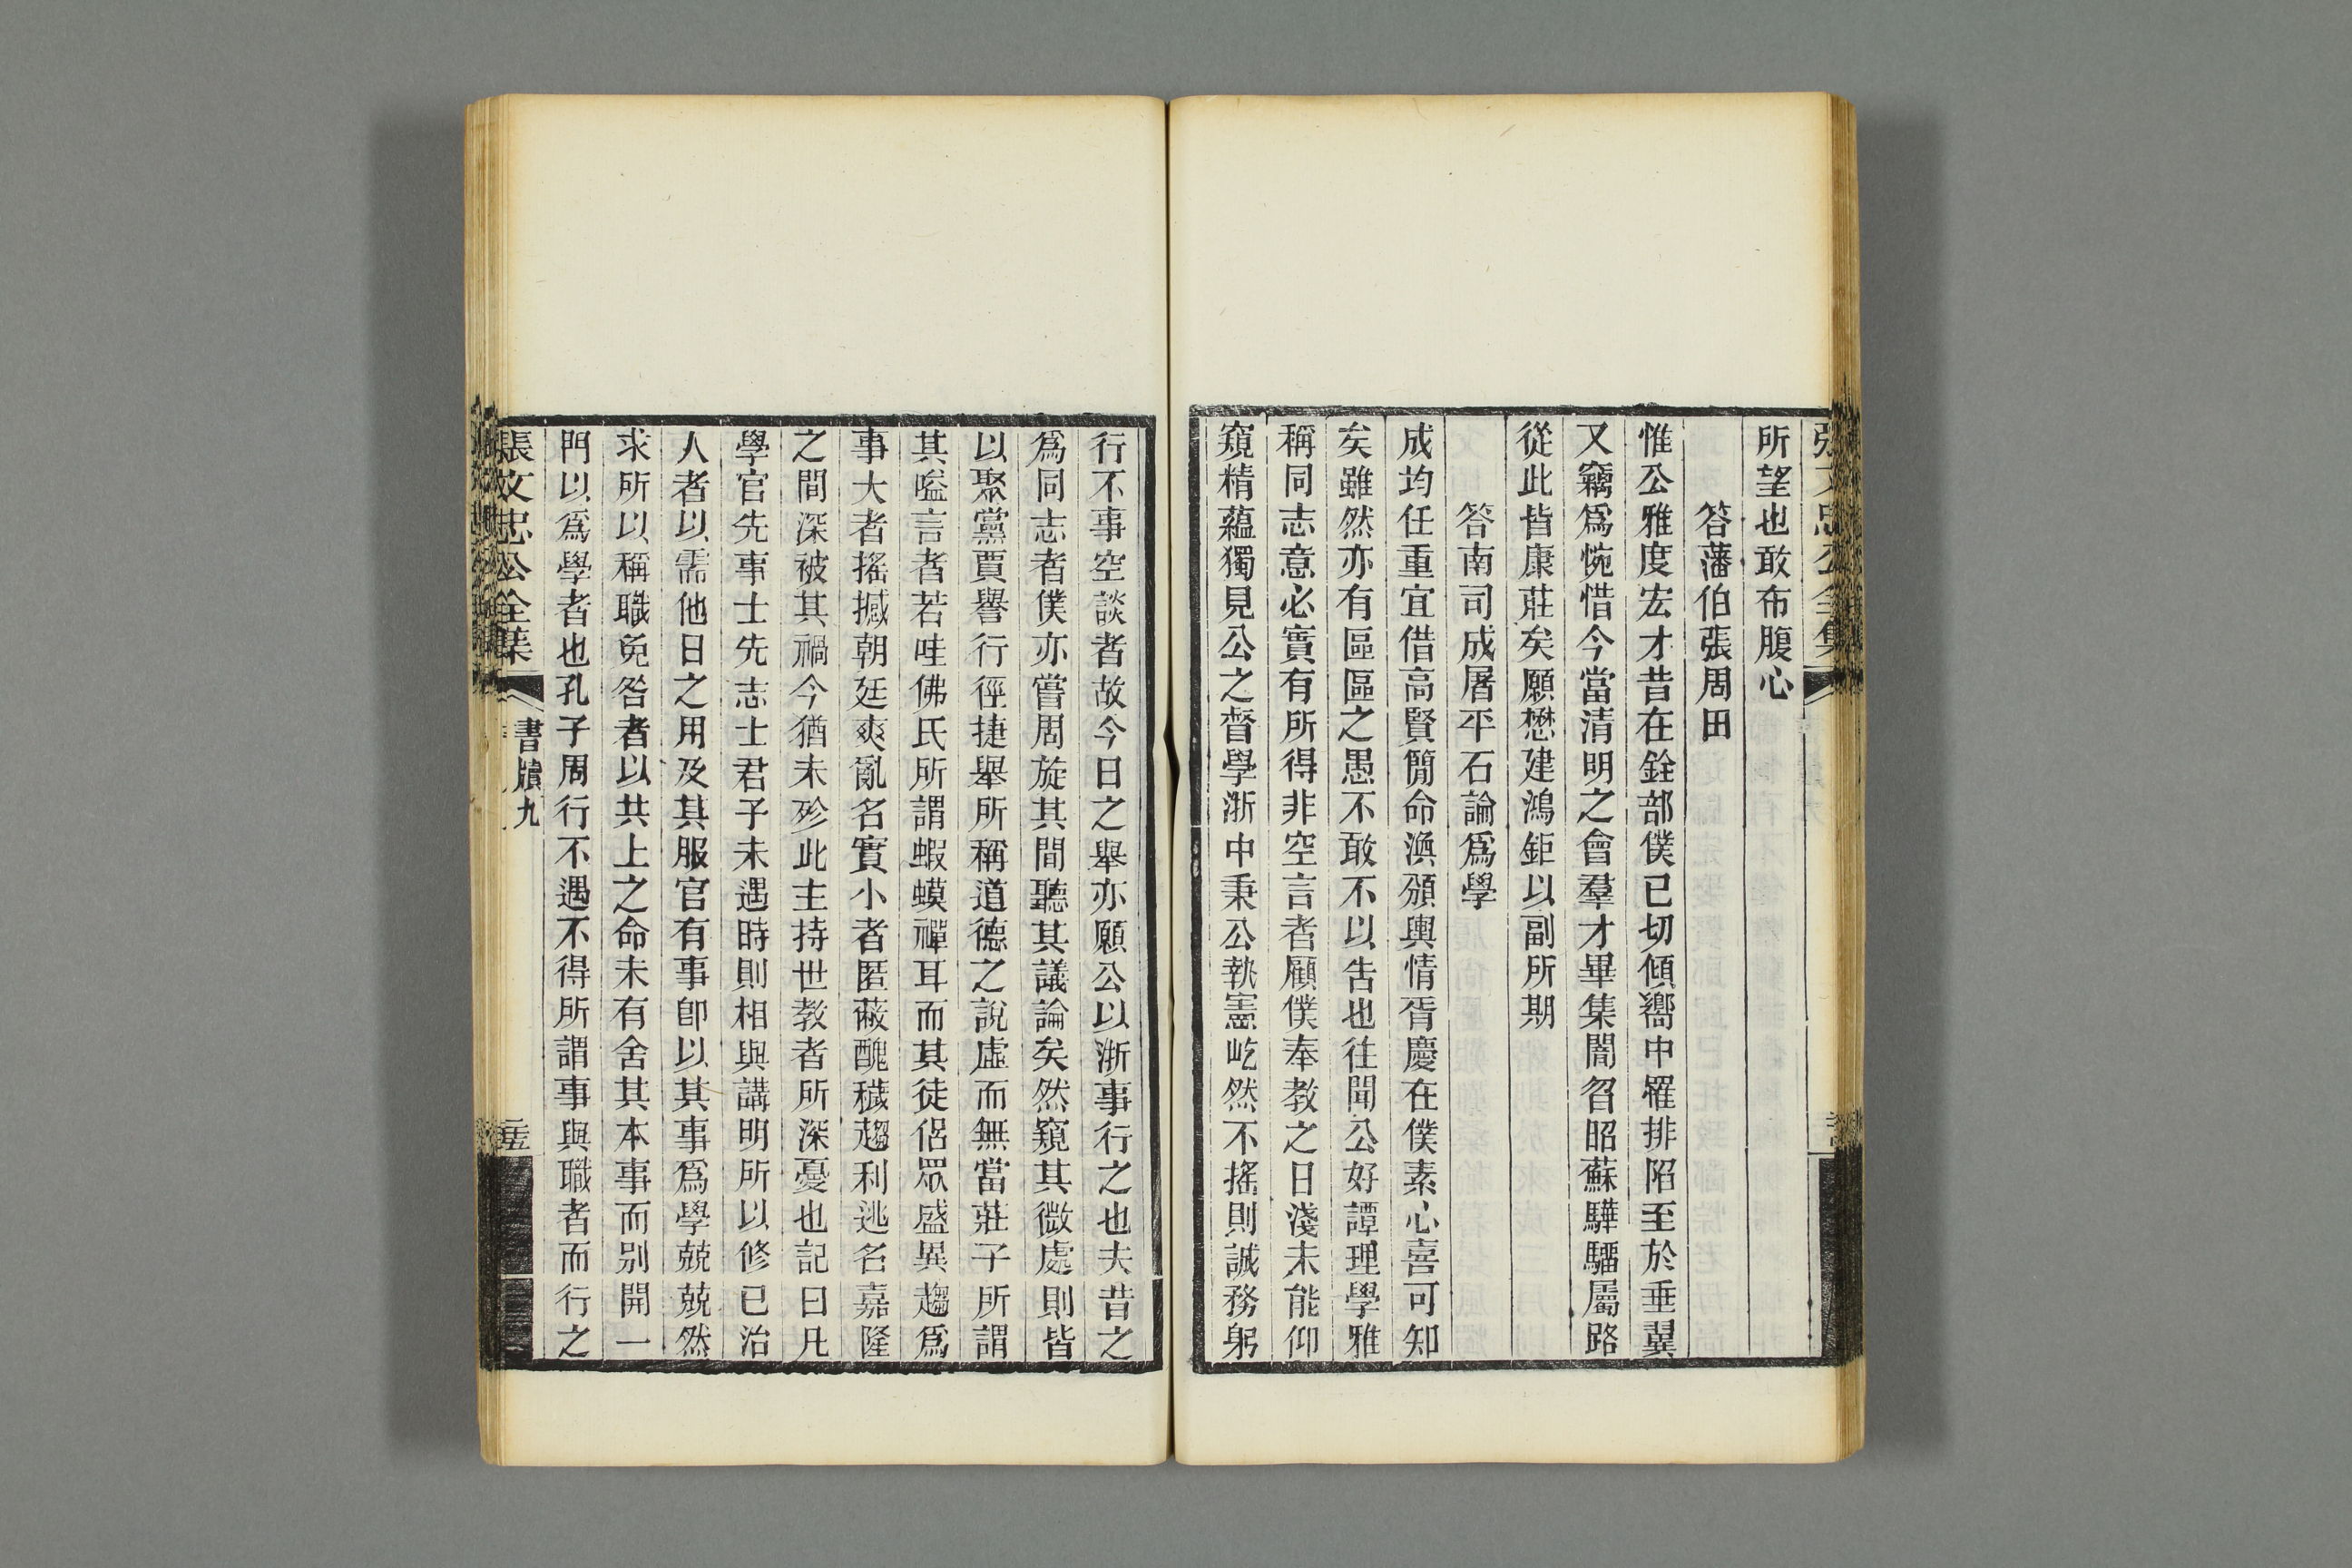 所望也敢布腹心
答藩伯張周田
惟公雅度宏才昔在銓部僕已切傾嚮中罹排陷至於垂翼
又竊爲惋惜今當清明之會羣才畢集閽召昭蘇驊騮屬路
從此皆康莊矣願懋建鴻鉅以副所期
答南司成屠平石論爲學
成均任重宜借高賢簡命渙頒輿情胥慶在僕素心喜可知
矣雖然亦有區區之愚不敢不以告也往聞公好譚理學雅
稱同志意必實有所得非空言者顧僕奉教之日淺未能仰
窺精蘊獨見公之督學浙中秉公執憲屹然不搖則誠務躬
行不事空談者故今日之舉亦願公以浙事行之也夫昔之
爲同志者僕亦嘗周旋其間聽其議論矣然窺其微處則皆
以聚黨賈譽行徑捷舉所稱道德之說虛而無當莊子所謂
其嗌言者若哇佛氏所謂蝦蟆禪耳而其徒侶眾盛異趨爲
事大者搖撼朝廷爽亂名實小者匿蔽醜穢趨利逃名嘉隆
之間深被其禍今猶未殄此主持世教者所深憂也記曰凡
學官先事士先志士君子未遇時則相與講明所以修已治
人者以需他日之用及其服官有事卽以其事爲學兢兢然
求所以稱職免咎者以共上之命未有舍其本事而别開一
門以爲學者也孔子周行不遇不得所謂事與職者而行之
張文忠公全集
書牘九